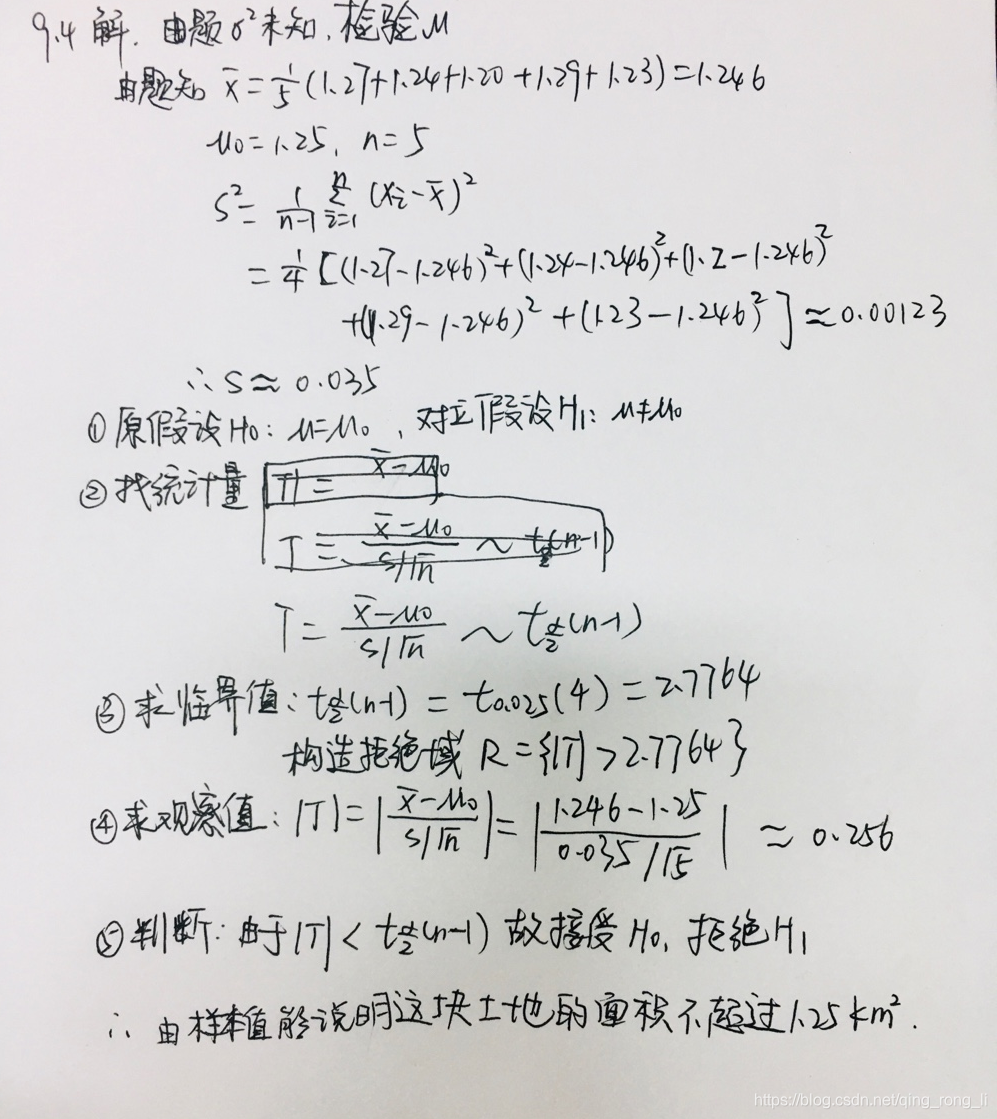 9.4 解. 由题σ²未知, 检验μ
由题知 x̄ = 1/5 (1.27+1.24+1.20+1.29+1.23) = 1.246
μ0 = 1.25, n = 5
S² = 1/(n-1) Σ_{i=1}^{n} (xi - x̄)²
= 1/4 [(1.27-1.246)²+(1.24-1.246)²+(1.2-1.246)²
+(1.29-1.246)² + (1.23-1.246)²] ≈ 0.00123
∴ S ≈ 0.035
① 原假设H0: μ=μ0, 对立假设H1: μ≠μ0
② 找统计量 |T| = x̄-μ0
T = (x̄-μ0)/(S/√n) ~ t_{α/2}(n-1)
T = (x̄-μ0)/(S/√n) ~ t_{α/2}(n-1)
③ 求临界值: t_{α/2}(n-1) = t_{0.025}(4) = 2.7764
构造拒绝域 R = {|T| > 2.7764}
④ 求观察值: |T| = |(x̄-μ0)/(S/√n)| = |(1.246-1.25)/(0.035/√5)| ≈ 0.256
⑤ 判断: 由于|T| < t_{α/2}(n-1) 故接受H0, 拒绝H1
∴ 由样本值能说明这块土地的面积不超过1.25 km².
https://blog.csdn.net/qing_rong_li